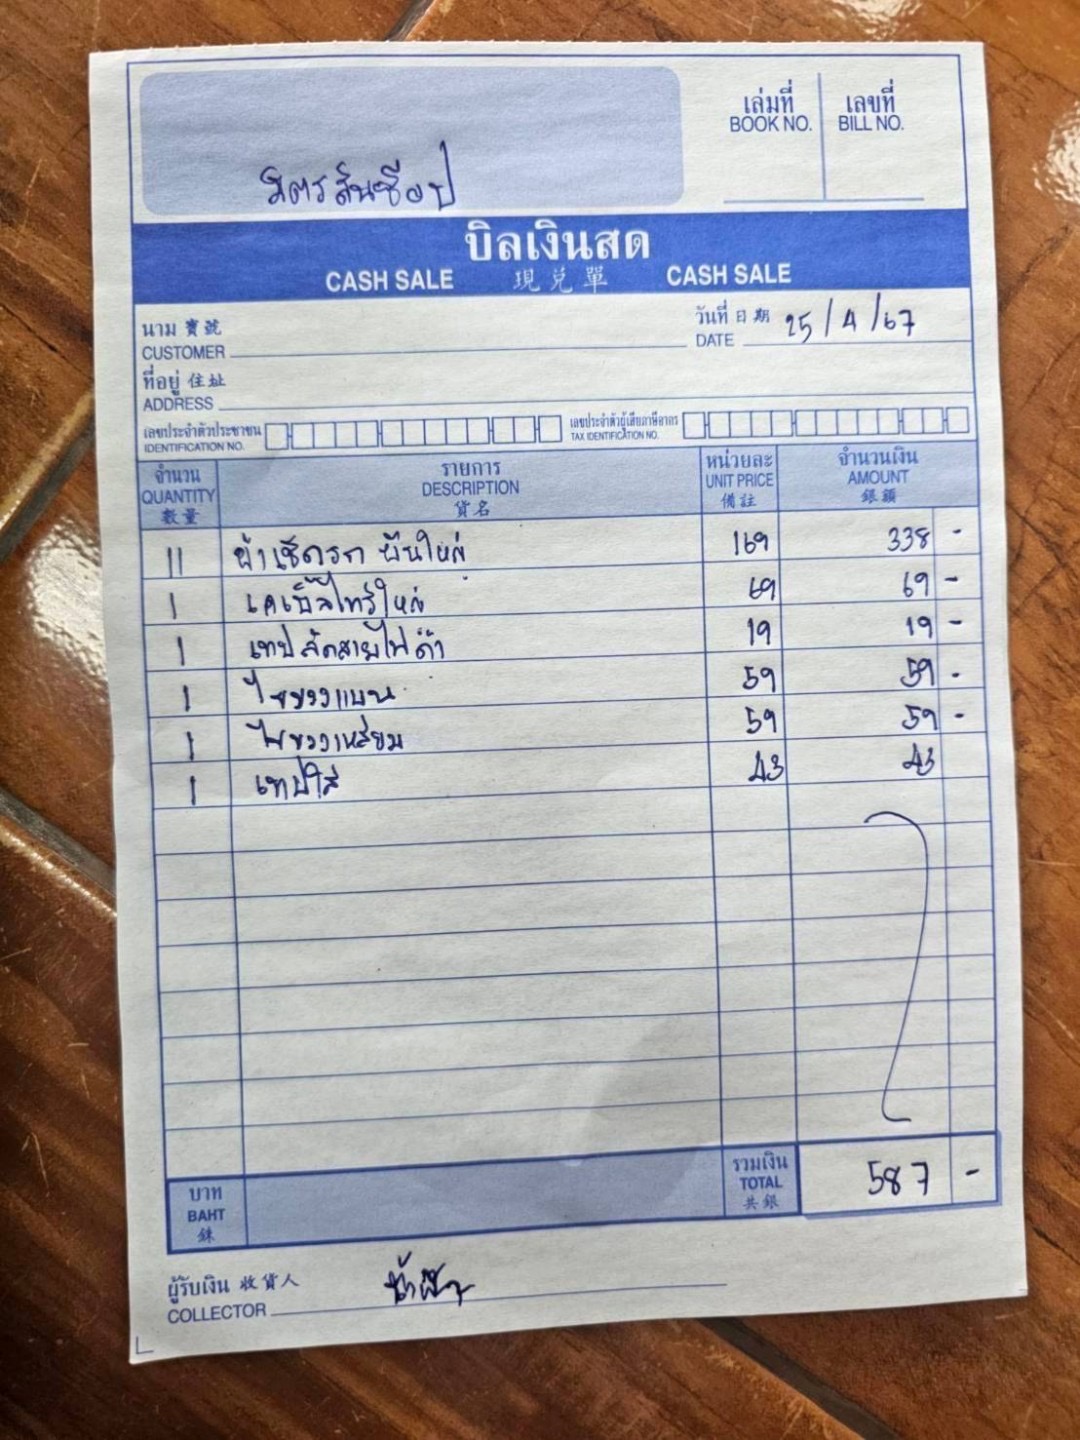 มิตรสันช๊อป
เล่มที่ เลขที่
BOOK NO. BILL NO.
บิลเงินสด
CASH SALE 現兑單 CASH SALE
นาม 寶號 วันที่ 日期 25/4/67
CUSTOMER DATE
ที่อยู่ 住址
ADDRESS
เลขประจำตัวประชาชน เลขประจำตัวผู้เสียภาษีอากร
IDENTIFICATION NO. TAX IDENTIFICATION NO.
จำนวน รายการ หน่วยละ จำนวนเงิน
QUANTITY DESCRIPTION UNIT PRICE AMOUNT
數量 貨名 備註 銀額
11 ผ้าเช็ดรถ ผืนใหญ่ 169 338 -
1 เคเบิ้ลไทร์ใหญ่ 69 69 -
1 เทปสายไฟดำ 19 19 -
1 ไขควงแบน 59 59 -
1 ไขควงเหลี่ยม 59 59 -
1 เทปใส 43 43
บาท รวมเงิน
BAHT TOTAL 587 -
銖 共銀
ผู้รับเงิน 收貨人
COLLECTOR